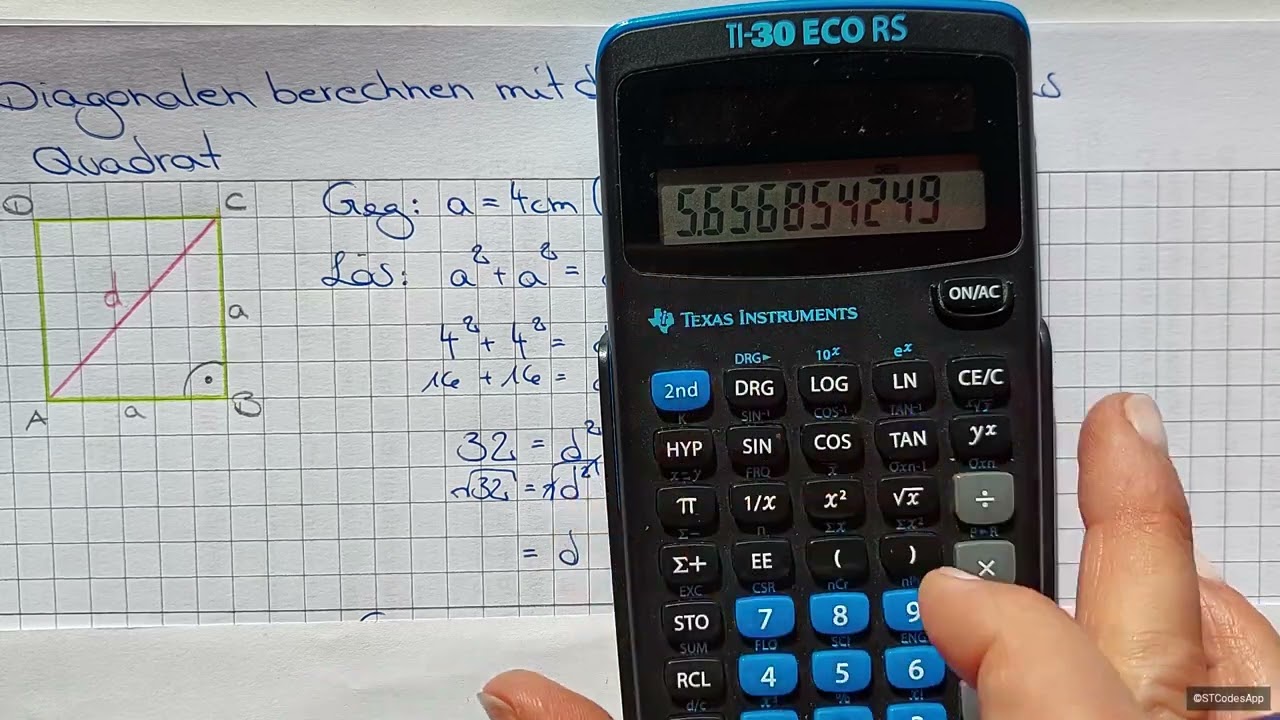 TI-30 ECO RS
Diagonalen berechnen mit
Quadrat
D
C
d
a
A
a
B
Geg: a = 4cm (
Lös: a² + a² =
4² + 4² =
16 + 16 =
32 = d²
√32 = √d²
= d
5.656854249
TEXAS INSTRUMENTS
ON/AC
DRG▸ 10ˣ eˣ
2nd DRG LOG LN CE/C
K SIN⁻¹ COS⁻¹ TAN⁻¹ ˣ√y
HYP SIN COS TAN yˣ
x⇌y FRQ x̄ σxn-1 σxn
π 1/x x² √x ÷
Σ− n Σx Σx² P▸R
Σ+ EE ( ) ×
EXC CSR nCr
STO 7 8 9
SUM FLO SCI ENG
RCL 4 5 6
d/c
©STCodesApp